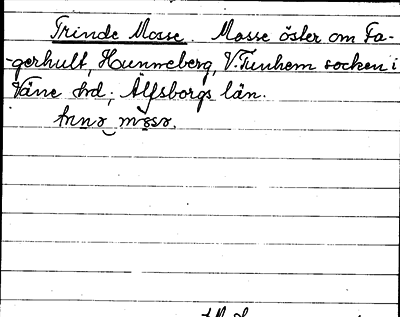 Trinde Mosse. Mosse öster om Fa-
-gerhult, Hunneberg, V. Tunhem socken i
Väne hd; Älfsborgs län.